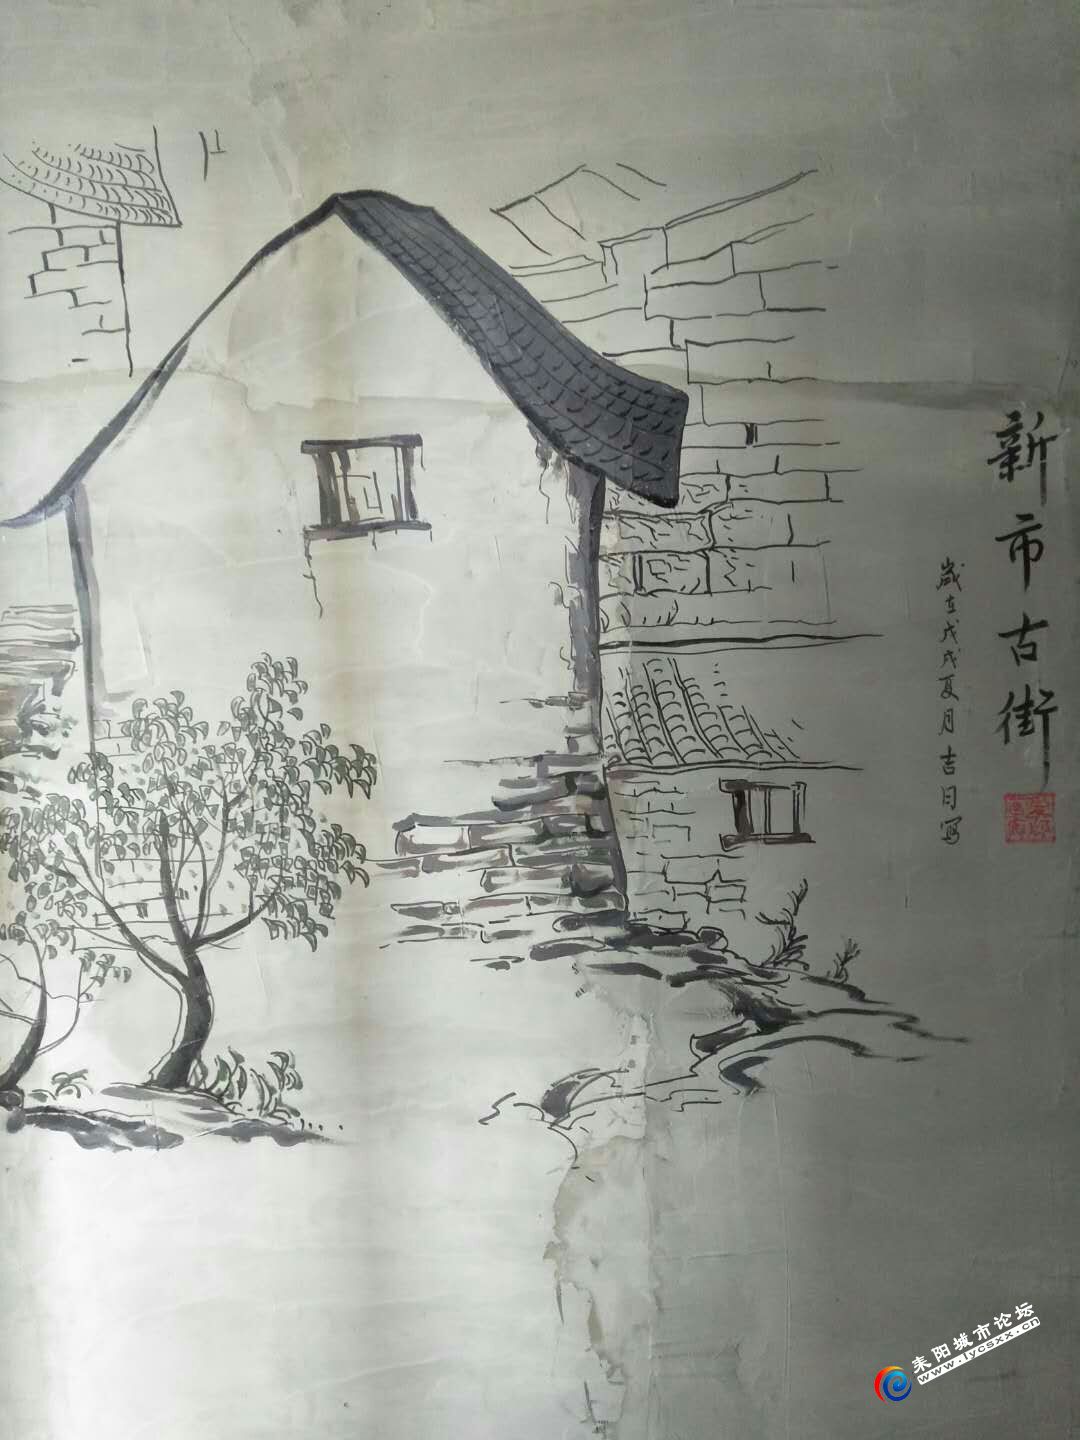 新市古街
歳在戊戌夏月吉日写
耒阳城市论坛
www.lycsxx.cn